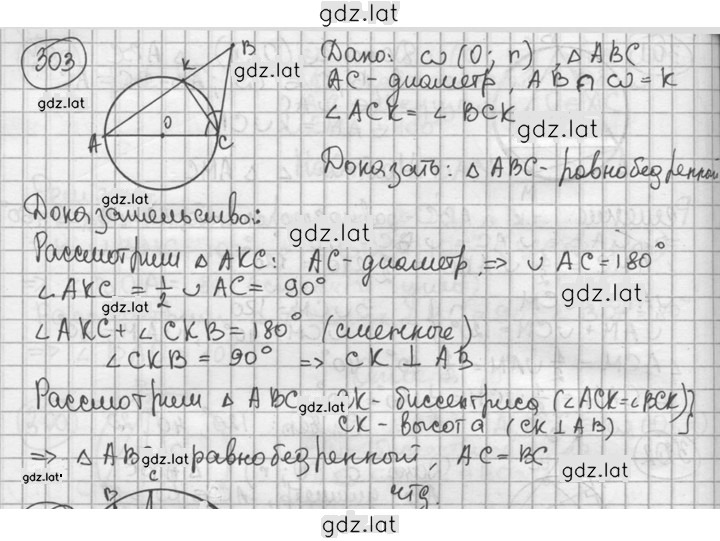 gdz.lat
303
Дано: ω (O; r), △ABC
AC - диаметр, AB ∩ ω = K
∠ACK = ∠BCK
Доказать: △ABC - равнобедренный
gdz.lat
gdz.lat
gdz.lat
K
B
A
O
C
gdz.lat
Доказательство:
gdz.lat
Рассмотрим △AKC: AC - диаметр, => ∪AC = 180°
∠AKC = 1/2 ∪ AC = 90°
gdz.lat
gdz.lat
∠AKC + ∠CKB = 180° (смежные)
∠CKB = 90° => CK ⊥ AB
Рассмотрим △ABC
gdz.lat
CK - биссектриса (∠ACK = ∠BCK)
CK - высота (CK ⊥ AB)
=> △AB
gdz.lat
равнобедренный, AC = BC
gdz.lat
gdz.lat
чтд.
B
C
gdz.lat